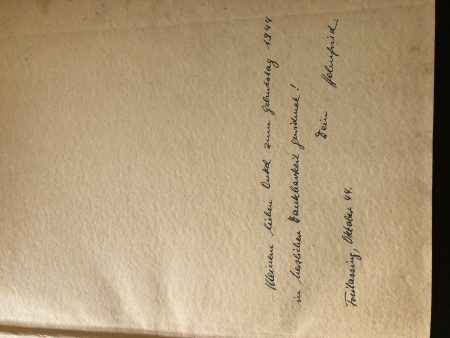 Meinem lieben Onkel zum Geburtstag 1944
in herzlicher Dankbarkeit gewidmet!
Dein Helmfried.
Freilassing, Oktober 44.